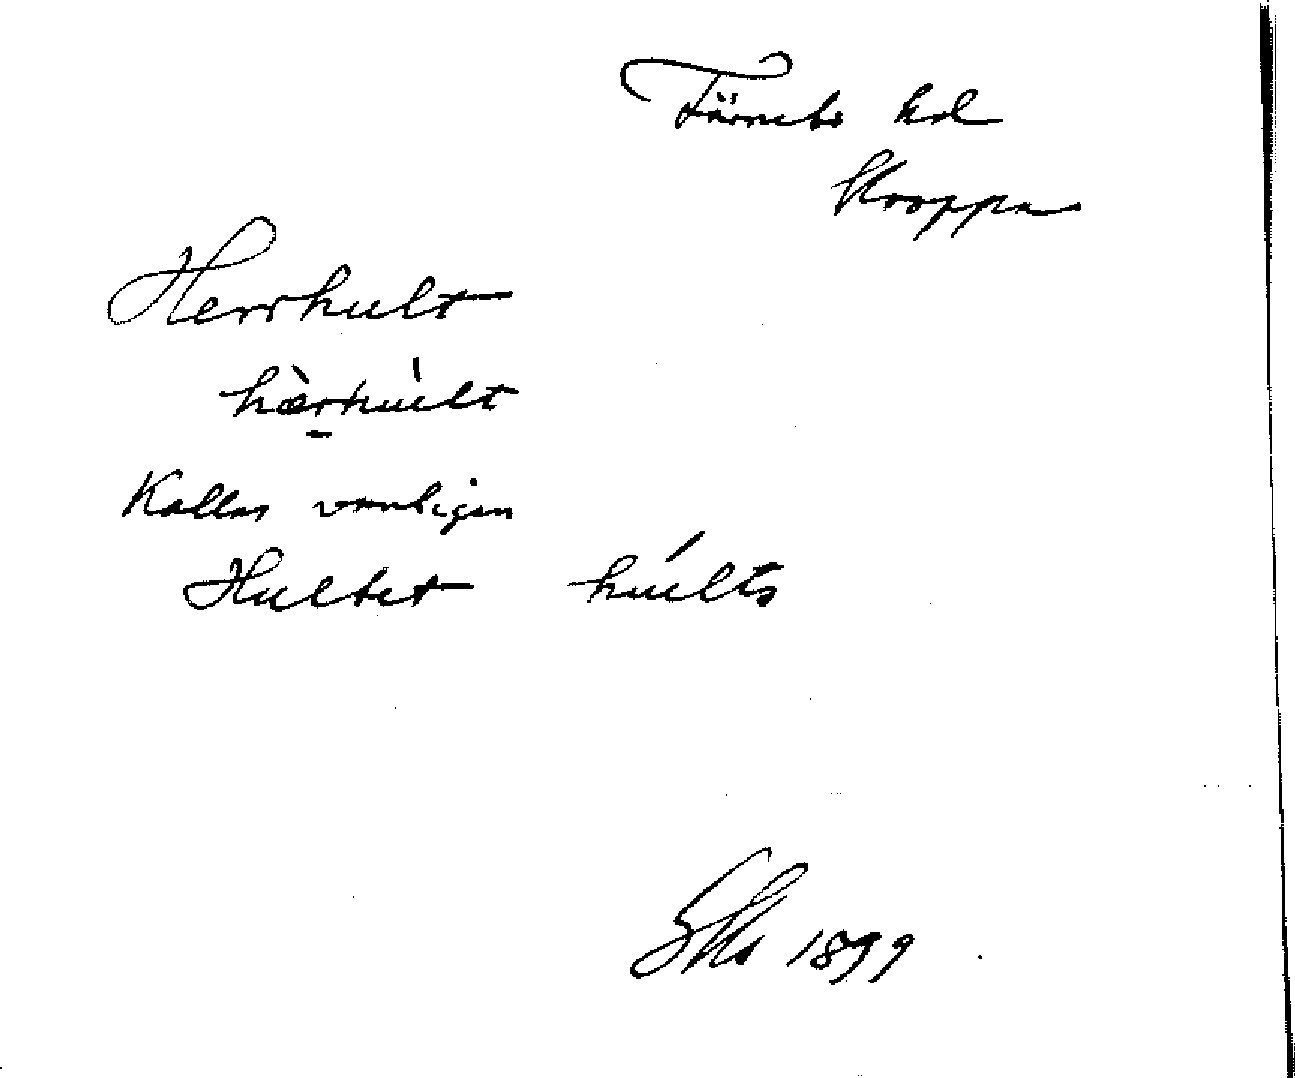 Färnebo hd
Kroppa
Herrhult
hàrhúlt
Kallas vanligen
Hultet húltə
1899